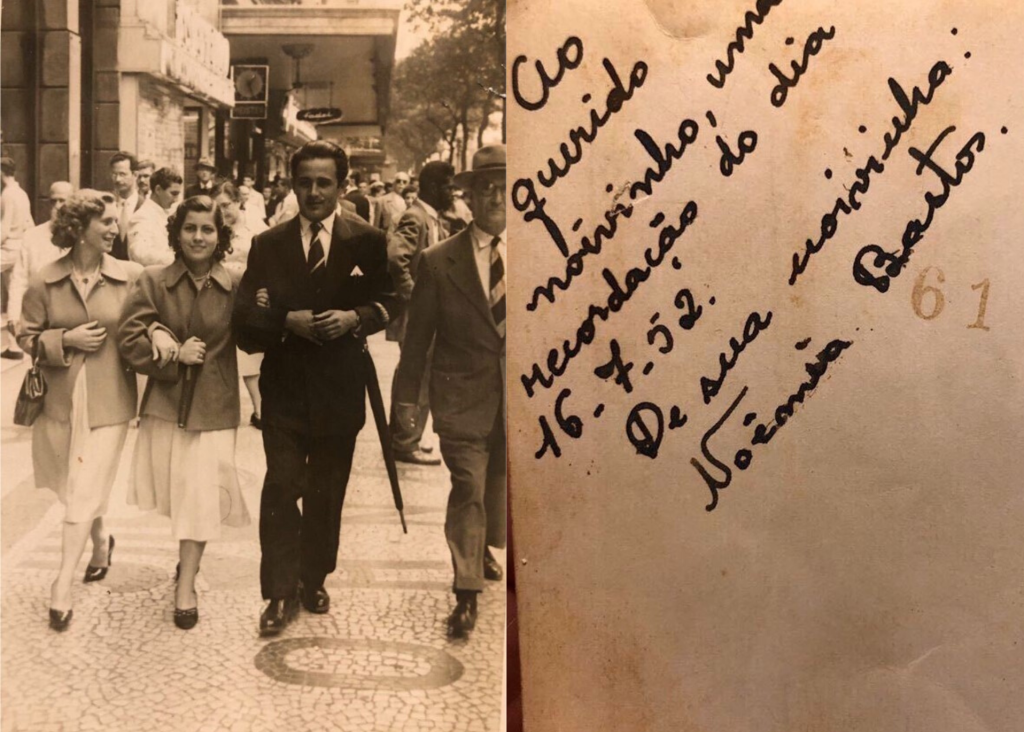 Ao
querido
noivinho, uma
recordação do dia
16-7-52.
De sua noivinha:
Noêmia Bastos.
61